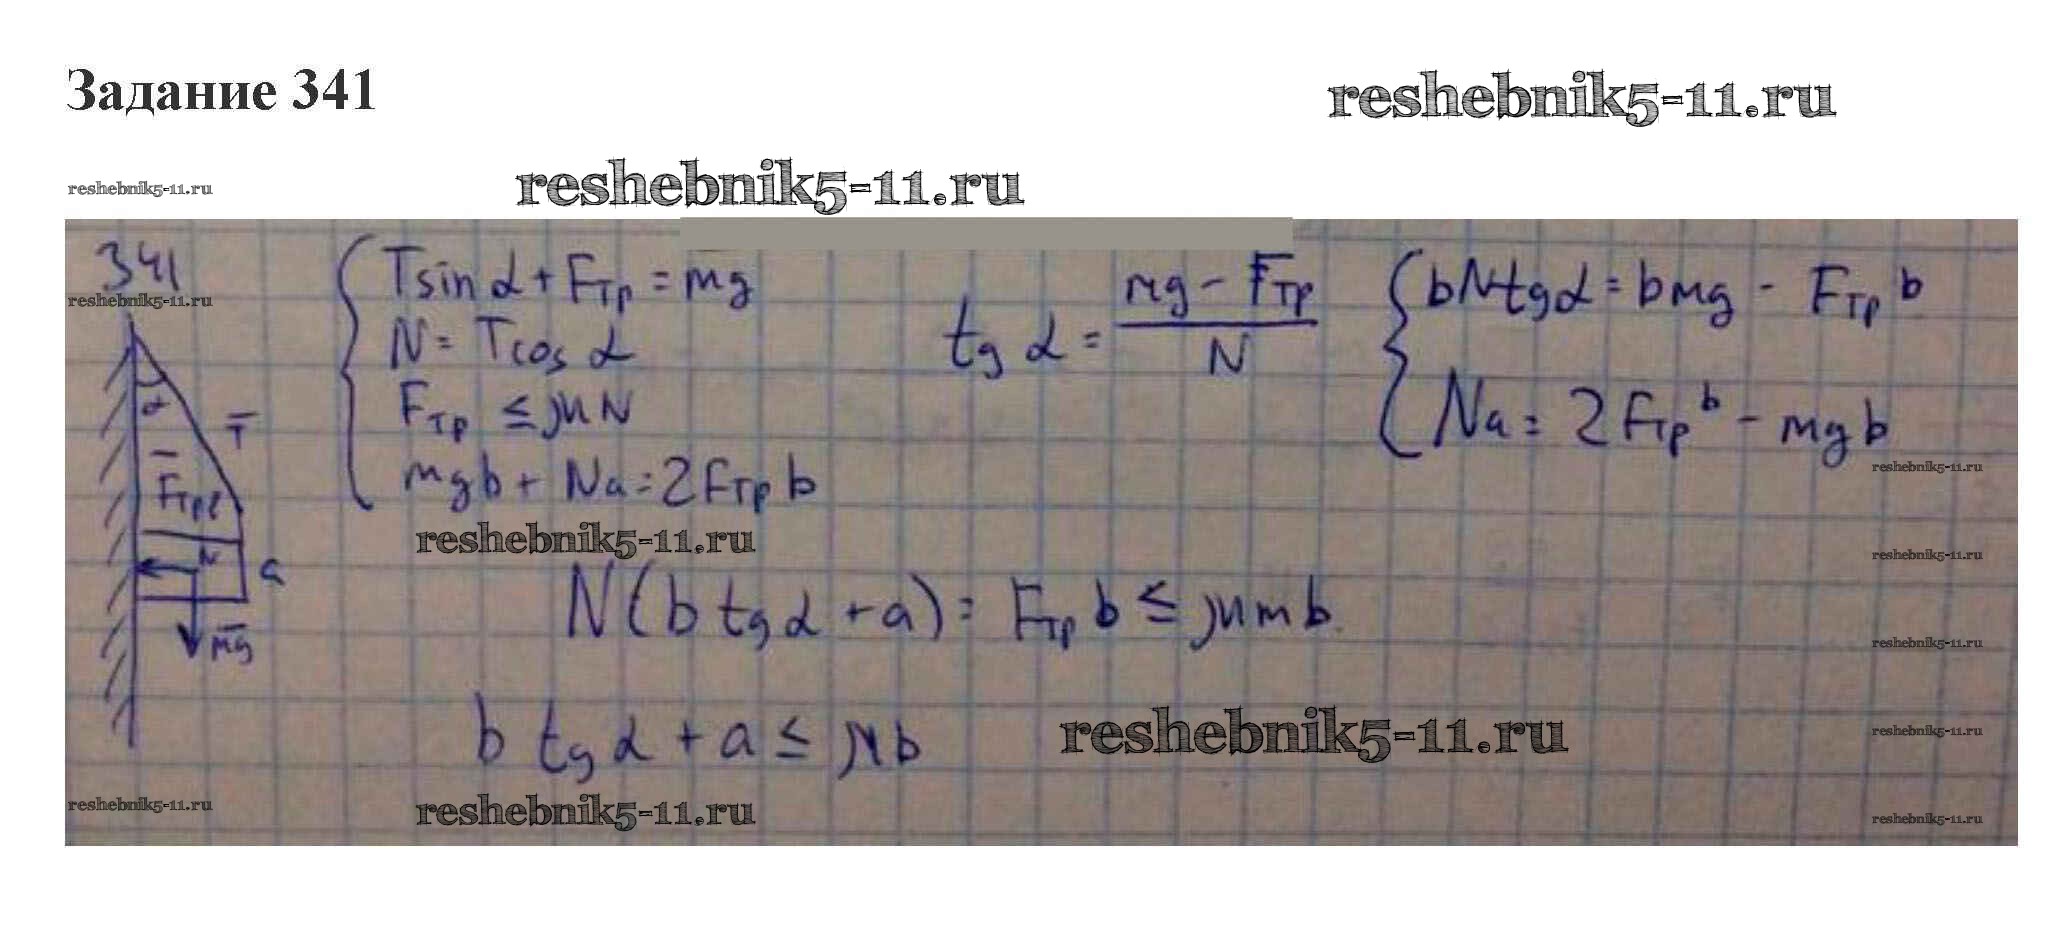 Задание 341
reshebnik5-11.ru
reshebnik5-11.ru
reshebnik5-11.ru
341
reshebnik5-11.ru
T sin α + Fтр = mg
N = T cos α
Fтр ≤ μN
mgb + Na = 2Fтр b
tg α = (mg - Fтр) / N
bN tg α = bmg - Fтр b
Na = 2Fтр b - mgb
reshebnik5-11.ru
α
T
Fтр
N
a
mg
reshebnik5-11.ru
reshebnik5-11.ru
N(b tg α + a) = Fтр b ≤ μmb
reshebnik5-11.ru
b tg α + a ≤ μb
reshebnik5-11.ru
reshebnik5-11.ru
reshebnik5-11.ru
reshebnik5-11.ru
reshebnik5-11.ru